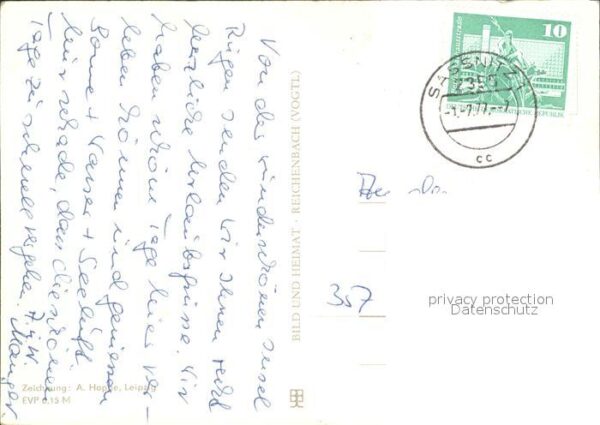 Von der wunderschönen Insel
Rügen senden wir Ihnen recht
herzliche Urlaubsgrüße. Wir
haben schöne Tage hier ver-
leben können und genießen
Sonne + Wasser + Seeluft.
Nur schade, das die schönen
Tage zu schnell vergehn.
BILD UND HEIMAT · REICHENBACH (VOGTL)
Zeichnung: A. Hoppe, Leipzig
EVP 0,15 M
10
SASSNITZ 1
2355
-1.-7.77.--1
CC
357
privacy protection
Datenschutz